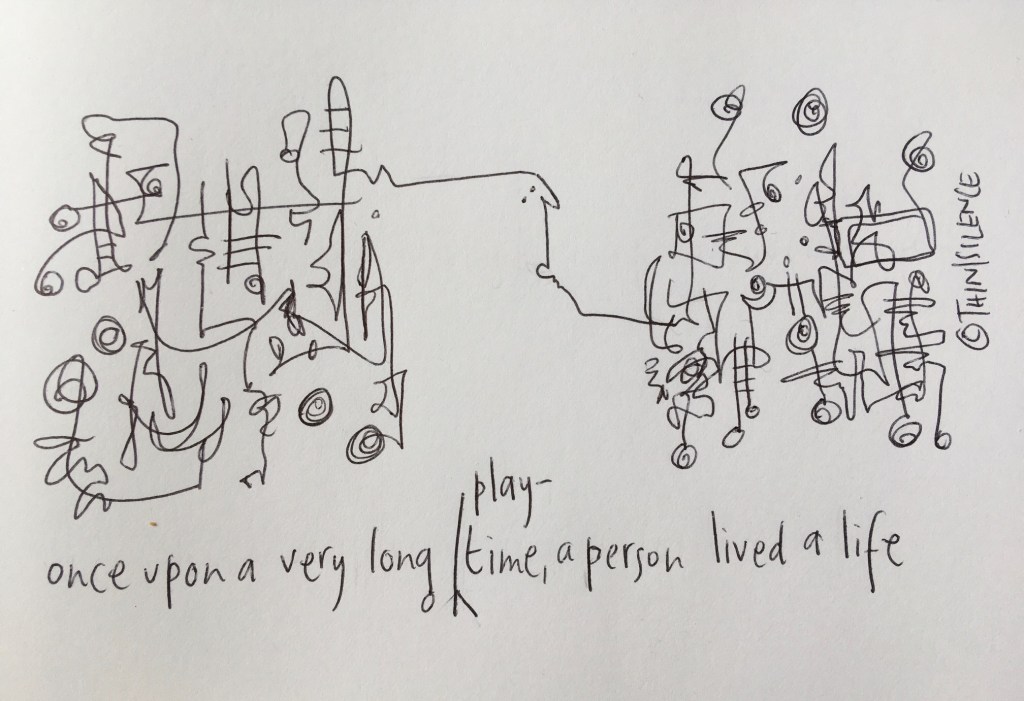 play-
once upon a very long time, a person lived a life
©THINSILENCE